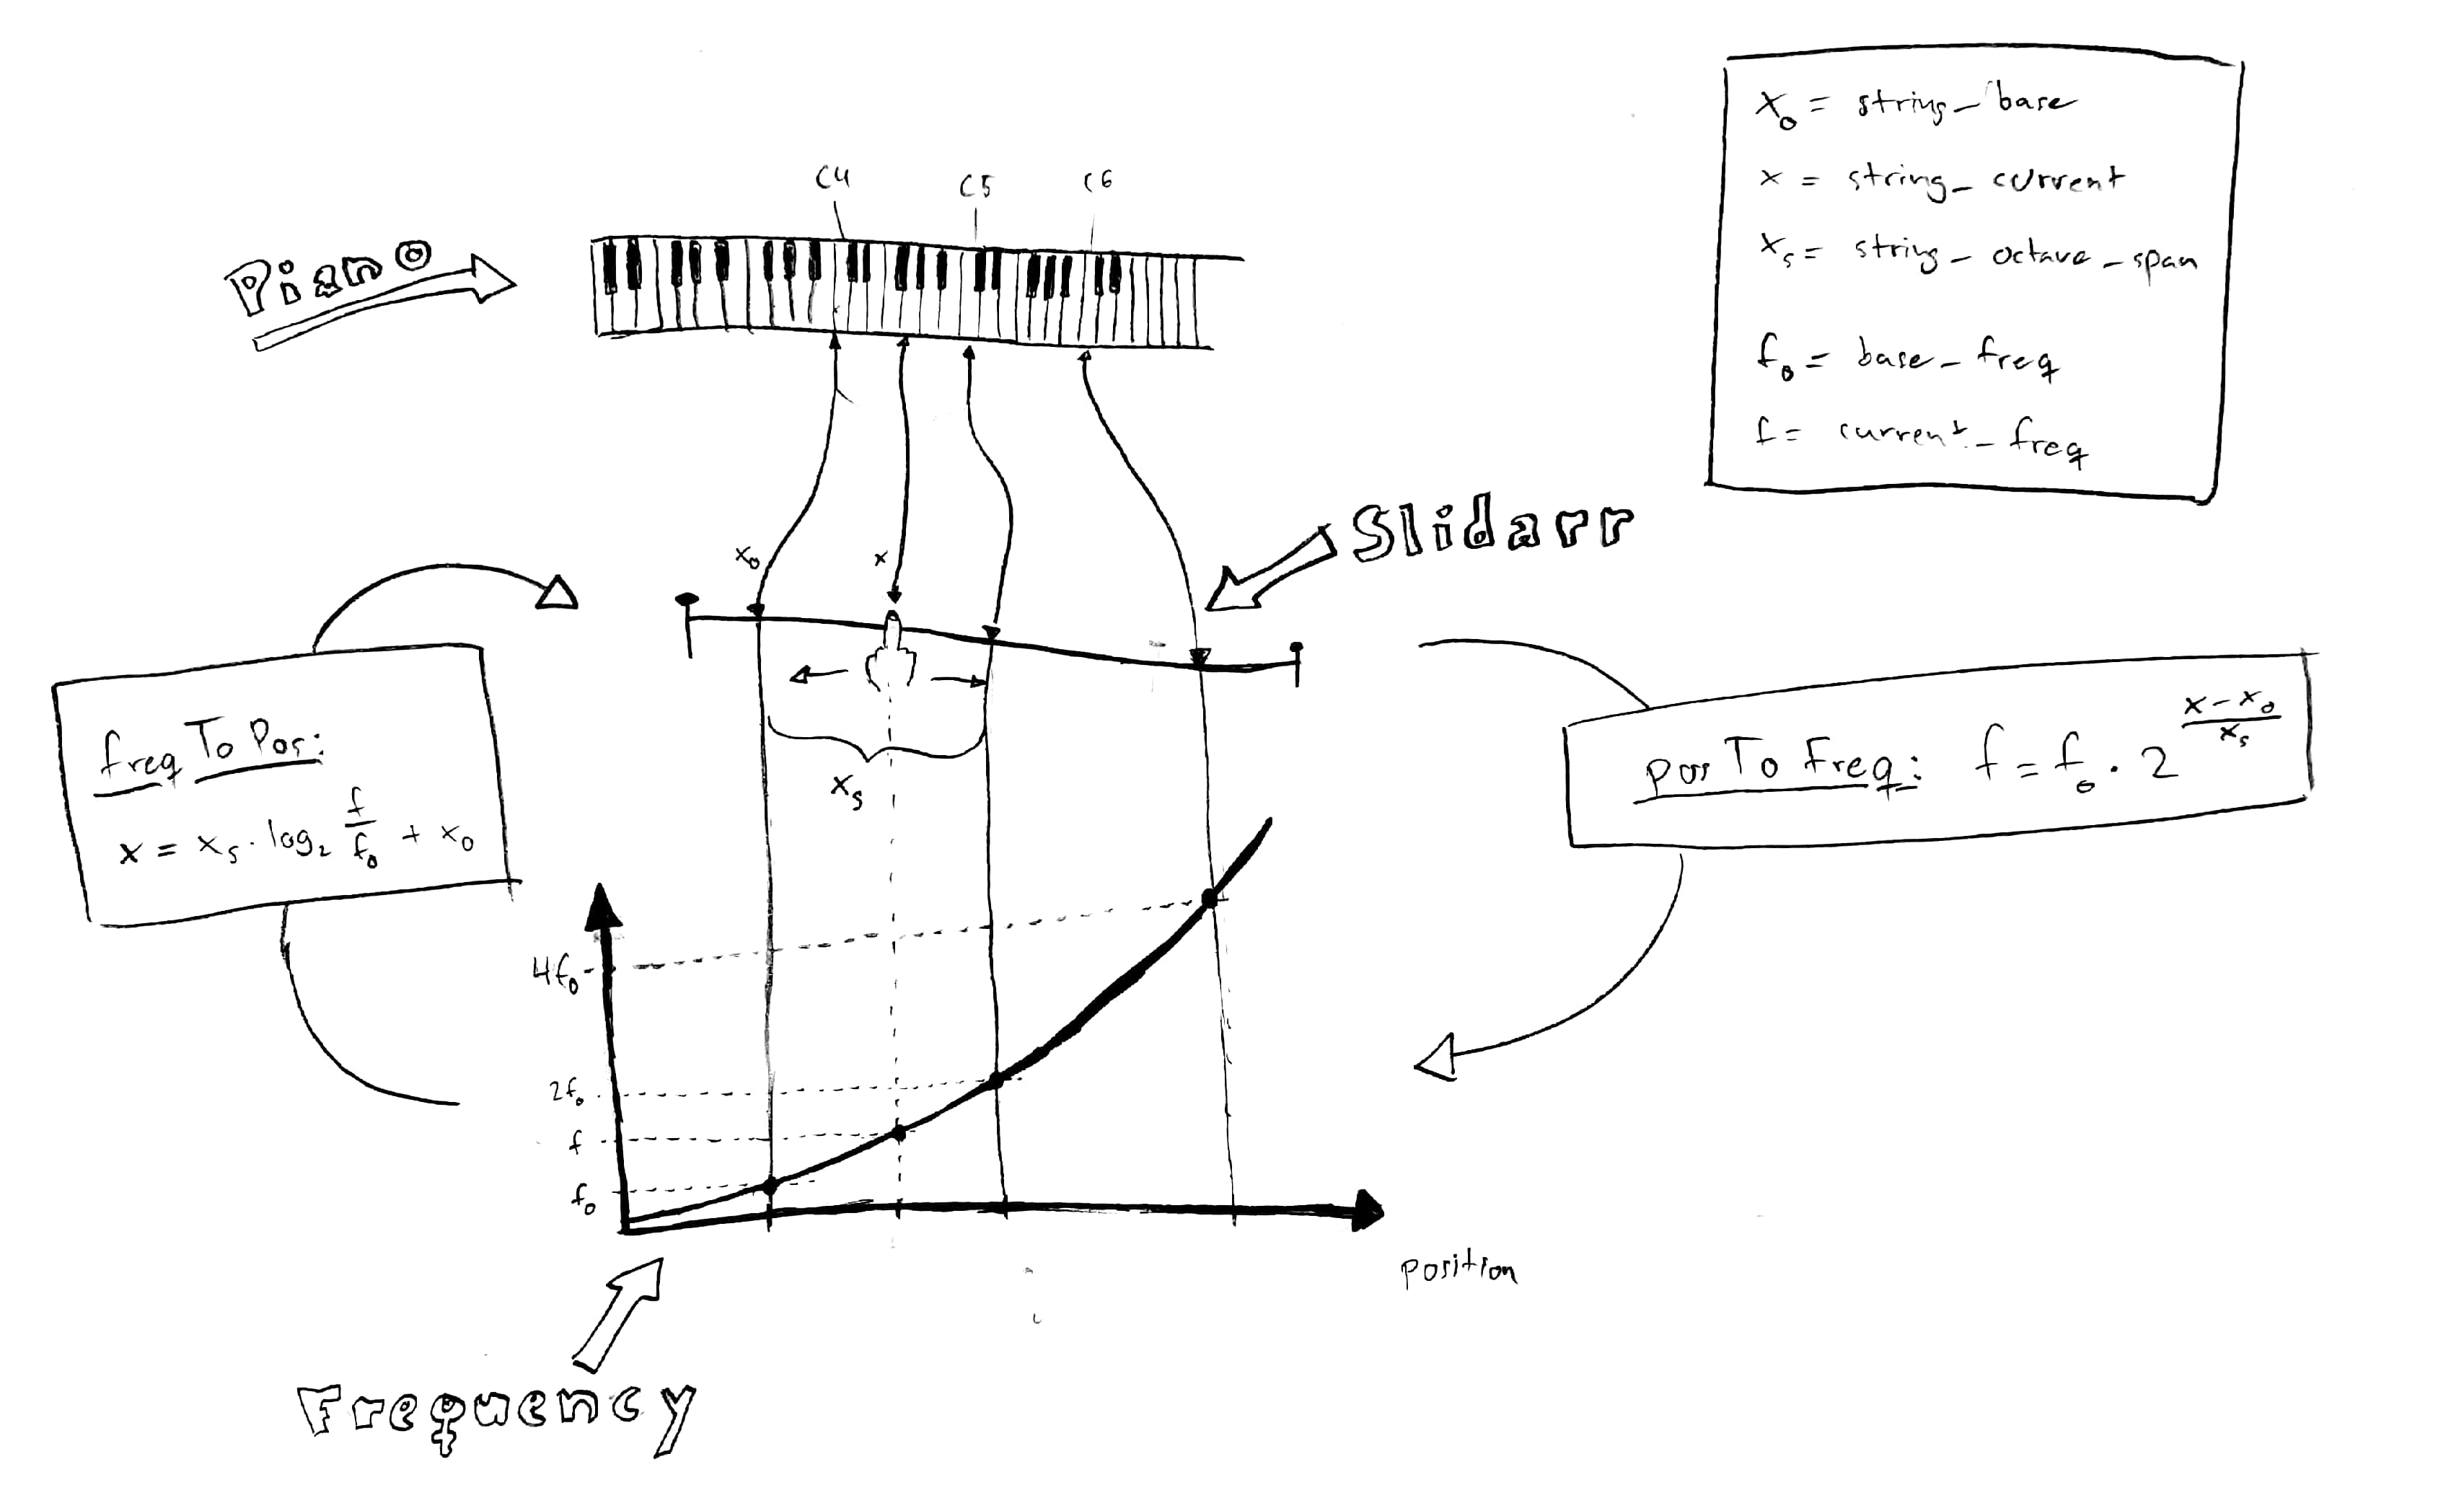 C4 C5 C6
Piano
x₀ = string_base
x = string_current
xₛ = string_octave_span
f₀ = base_freq
f = current_freq
Slidarr
x₀ x
xₛ
freqToPos:
x = xₛ · log₂ f/f₀ + x₀
posToFreq: f = f₀ · 2^((x-x₀)/xₛ)
4f₀
2f₀
f
f₀
Position
Frequency